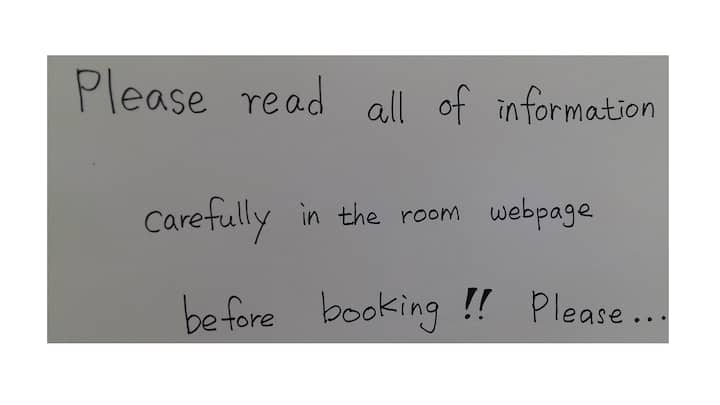 Please read all of information
carefully in the room webpage
before booking!! Please...